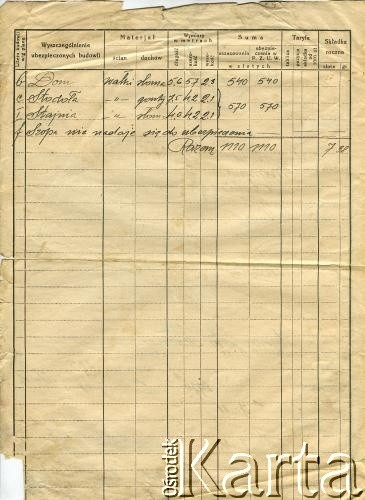 Wyszczególnienie ubezpieczonych budowli
Materjał
ścian
dachów
Wymiary w metrach
długość
Suma
oszacowania
ubezpieczenia w P. Z. U. W.
w złotych
Taryfa
Składka roczna
złote
gr.
b Dom walki słoma 5,6 5,7 2,3 540 540
c Stodoła -"- gonty 7,5 4,2 2,1
570 570
i Stajnia -"- słom 4,0 4,2 2,1
f Szopa nie nadaje się do ubezpieczenia
Razem 1110 1110 7
Ośrodek Karta